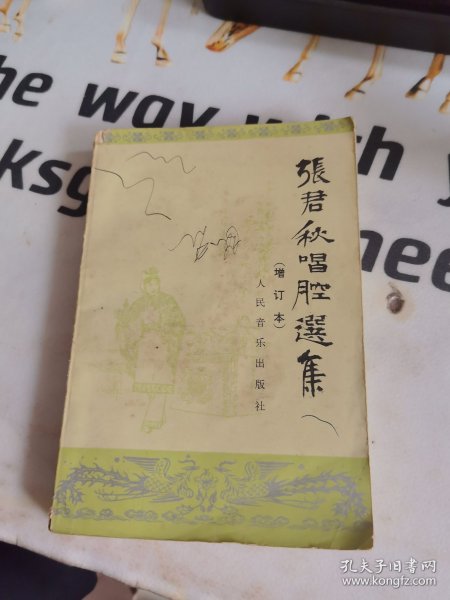 he way with y
ksg
nee
張君秋唱腔選集
(增订本)
人民音乐出版社
孔夫子旧书网
www.kongfz.com